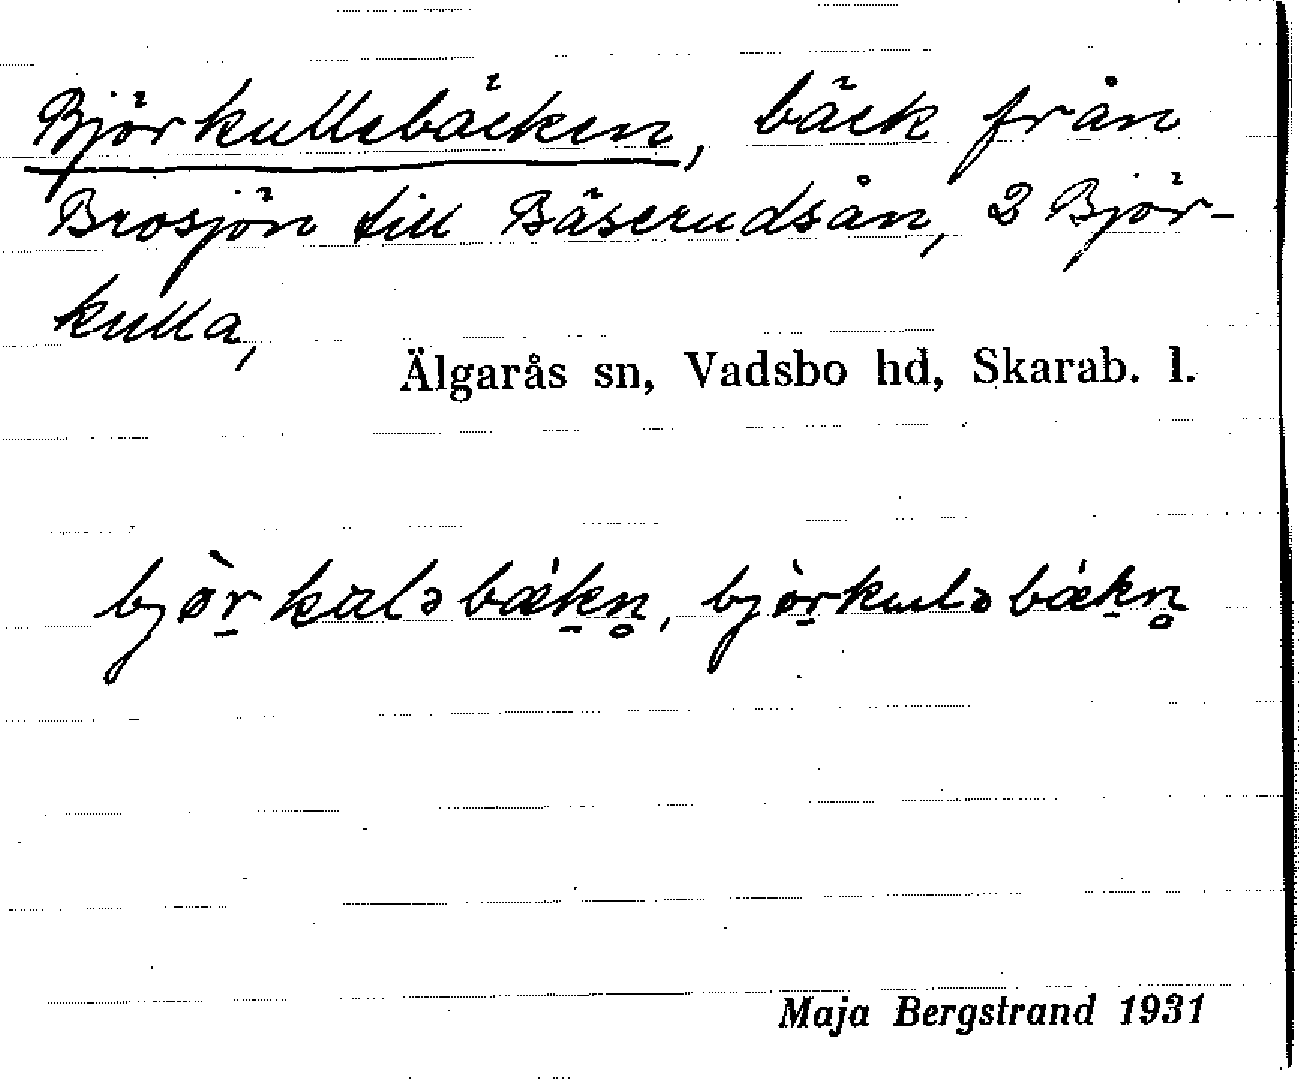 Björkullebäcken, bäck från
Brosjön till Bäserudsån, 2 Björ-
kulla,
Älgarås sn, Vadsbo hd, Skarab. l.
bjö̀r̠kulə bǽk̠n̥, bjö̀r̠kulə bǽk̠n̥
Maja Bergstrand 1931